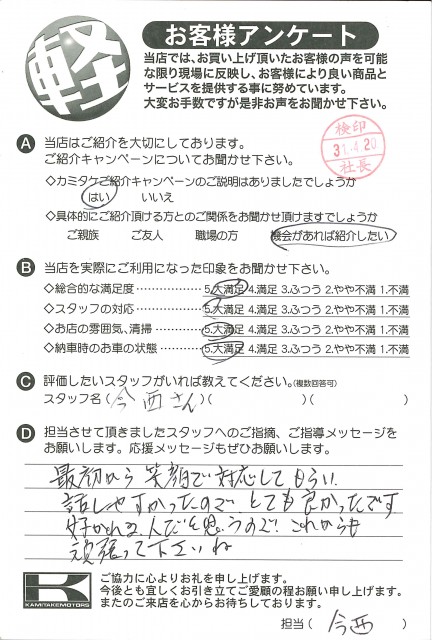 軽
お客様アンケート
当店では、お買い上げ頂いたお客様の声を可能
な限り現場に反映し、お客様により良い商品と
サービスを提供する事に努めています。
大変お手数ですが是非お声をお聞かせ下さい。
A 当店はご紹介を大切にしております。
ご紹介キャンペーンについてお聞かせ下さい。
検印
31.4.20
社長
◇カミタケご紹介キャンペーンのご説明はありましたでしょうか
はい いいえ
◇具体的にご紹介頂ける方とのご関係をお聞かせ頂けますでしょうか
ご親族 ご友人 職場の方 機会があれば紹介したい
B 当店を実際にご利用になった印象をお聞かせ下さい。
◇総合的な満足度 5.大満足 4.満足 3.ふつう 2.やや不満 1.不満
◇スタッフの対応 5.大満足 4.満足 3.ふつう 2.やや不満 1.不満
◇お店の雰囲気、清掃 5.大満足 4.満足 3.ふつう 2.やや不満 1.不満
◇納車時のお車の状態 5.大満足 4.満足 3.ふつう 2.やや不満 1.不満
C 評価したいスタッフがいれば教えてください。(複数回答可)
スタッフ名(今西さん)( )( )
D 担当させて頂きましたスタッフへのご指摘、ご指導メッセージを
お願いします。応援メッセージもぜひお願いします。
最初から笑顔で対応してもらい
話しやすかったので、とても良かったです
好かれる人だと思うので、これからも
頑張って下さいね
K
KAMITAKE MOTORS
ご協力に心よりお礼を申し上げます。
今後とも宜しくお引き立てご愛顧の程お願い申し上げます。
またのご来店を心からお待ちしております。
担当( 今西 )